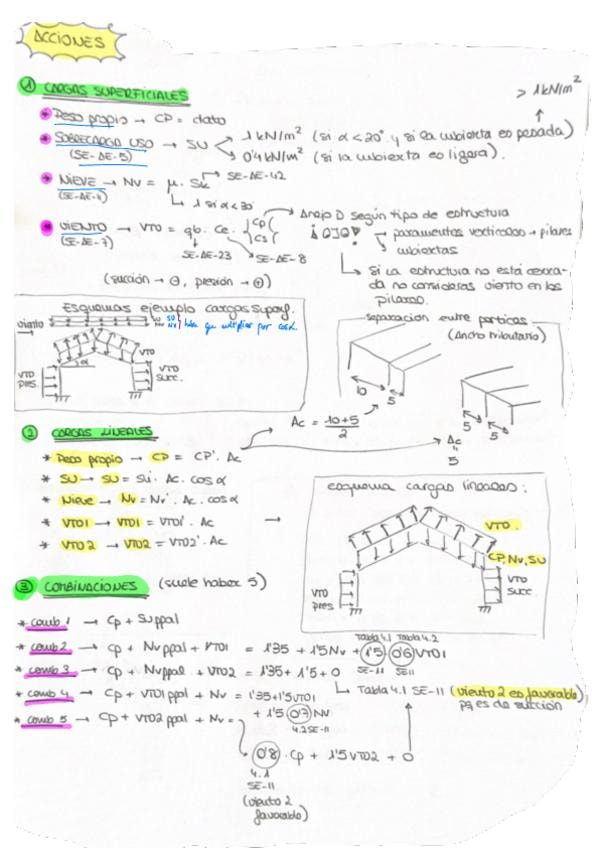 ACCIONES
① CARGAS SUPERFICIALES
> 1 kN/m²
* Peso propio → CP = dato
* SOBRECARGA USO → SU
(SE-AE-5)
1 kN/m² (si α < 20° y si la cubierta es pesada)
0'4 kN/m² (si la cubierta es ligera).
* NIEVE → Nv = μ. Sk → SE-AE-42
(SE-AE-11)
↳ 1 si α < 30
* VIENTO → VTO = qb. Ce. { Cp Cs } → Anejo D según tipo de estructura
(SE-AE-7)
SE-AE-23
SE-AE-8
¡OJO!
→ paramentos verticales → pilares
→ cubiertas
↳ Si la estructura no está cerra-
da no consideras viento en los
pilares.
(succión → ⊖, presión → ⊕)
Esquemas ejemplo cargas superf.
viento
SU
NV
hay que multiplicar por cos α.
VTO
α
VTO pres.
VTO succ.
separación entre pórticos
(Ancho tributario)
10
5
5
5
Ac = 10+5 / 2
Ac
"
5
② CARGAS LINEALES
* Peso propio → CP = CP'. Ac
* SU → SU = Su'. Ac. cos α
* Nieve → Nv = Nv'. Ac. cos α
* VTO1 → VTO1 = VTO1'. Ac →
* VTO2 → VTO2 = VTO2'. Ac
esquema cargas lineales:
VTO.
CP, Nv, SU
VTO pres
VTO succ.
③ COMBINACIONES (suele haber 5)
* comb 1 → Cp + SUppal
Tabla 4.1 Tabla 4.2
* comb 2 → Cp + Nvppal + VTO1 = 1'35 + 1'5 Nv + 1'5 0'6 VTO1
SE-11 SE11
* comb 3 → Cp + Nvppal + VTO2 = 1'35 + 1'5 + 0
↳ Tabla 4.1 SE-11 (viento 2 es favorable)
pq es de succión
* comb 4 → Cp + VTO1 ppal + Nv = 1'35 + 1'5 VTO1
+ 1'5 0'7 Nv
4.2 SE-11
* comb 5 → Cp + VTO2 ppal + Nv =
0'8 · Cp + 1'5 VTO2 + 0
4.1
SE-11
(viento 2
favorable)